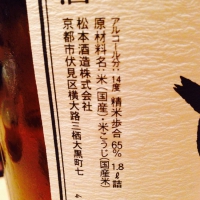 酒
アルコール分 14度 精米歩合 65% 1.8ℓ詰
原材料名 米(国産)・米こうじ(国産米)
松本酒造株式会社
京都市伏見区横大路三栖大黒町七